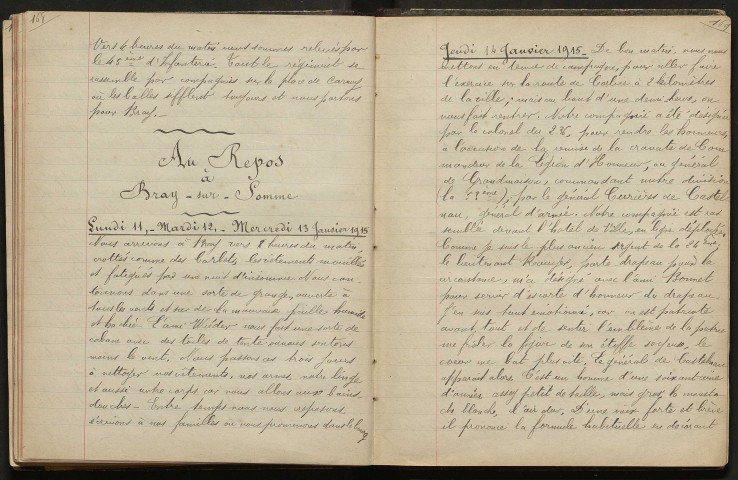 168
Vers 4 heures du matin nous sommes relevés par
le 45ème d'Infanterie. Tout le régiment se
rassemble par compagnies sur la place de Carnoy
où les balles sifflent toujours et nous partons
pour Bray.
Au Repos
à
Bray-sur-Somme
Lundi 11, - Mardi 12, - Mercredi 13 Janvier 1915
Nous arrivons à Bray vers 8 heures du matin,
crottés comme des barbets, les vêtements mouillés
et fatigués par une nuit d'insomnie. Nous can-
tonnons dans une sorte de grange, ouverte à
tous les vents et sur de la mauvaise paille humide
et hachée. L'ami Wéder nous fait une sorte de
cabane avec des toiles de tente où nous sentons
moins le vent. Nous passons ces trois jours
à nettoyer nos vêtements, nos armes notre linge
et aussi notre corps car nous allons aux bains-
douches. Entre temps nous nous reposons
écrivons à nos familles ou nous promenons dans le bourg
169
Jeudi 14 Janvier 1915. De bon matin nous nous
mettons en tenue de campagne pour aller faire
l'exercice sur la route de à 2 kilomètres
de la ville; mais au bout d'une demi-heure on
nous fait rentrer. Notre compagnie a été désignée
par le colonel du 26, pour rendre les honneurs,
à l'occasion de la remise de la cravate de Com-
mandeur de la Légion d'Honneur, au général
de Grandmaison, commandant notre division
(la ème), par le général Curières de Castel-
nau, général d'armée. Notre compagnie est ras-
semblée devant l'hôtel de Ville, en ligne déployée.
Comme je suis le plus ancien sergent de la 24ème,
le lieutenant, porte drapeau pour la
circonstance, m'a désigné avec l'ami Bonnet
pour servir d'escorte d'honneur au drapeau.
J'en suis tout émotionné, car on est patriote
avant tout et de sentir l'emblème de la patrie
me frôler la figure de son étoffe soyeuse, le
cœur me bat plus vite. Le général de Castelnau
apparaît alors. C'est un homme d'une soixantaine
d'années assez petit de taille, mais gros, la mousta-
che blanche, l'air dur. D'une voix forte et brève
il prononce la formule habituelle en décorant